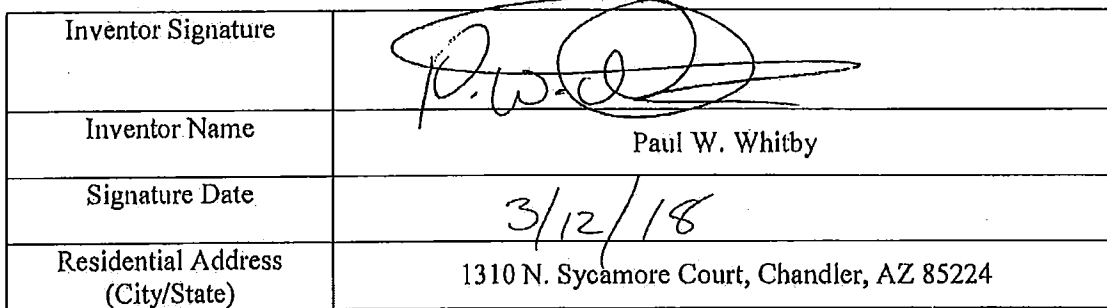 Inventor Signature
Inventor Name
Paul W. Whitby
Signature Date
3/12/18
Residential Address
(City/State)
1310 N. Sycamore Court, Chandler, AZ 85224